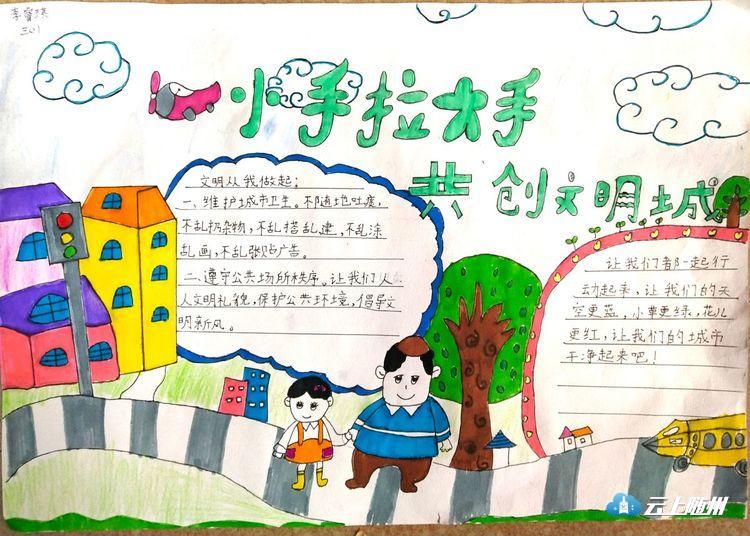 李睿琪
三(1)
小手拉大手
共创文明城
文明从我做起:
一、维护城市卫生。不随地吐痰,
不乱扔杂物,不乱搭乱建,不乱涂
乱画,不乱张贴广告。
二、遵守公共场所秩序。让我们从
人文明礼貌,保护公共环境,倡导文
明新风。
让我们都一起行
动起来,让我们的天
空更蓝,小草更绿,花儿
更红,让我们的城市
干净起来吧!
云上随州